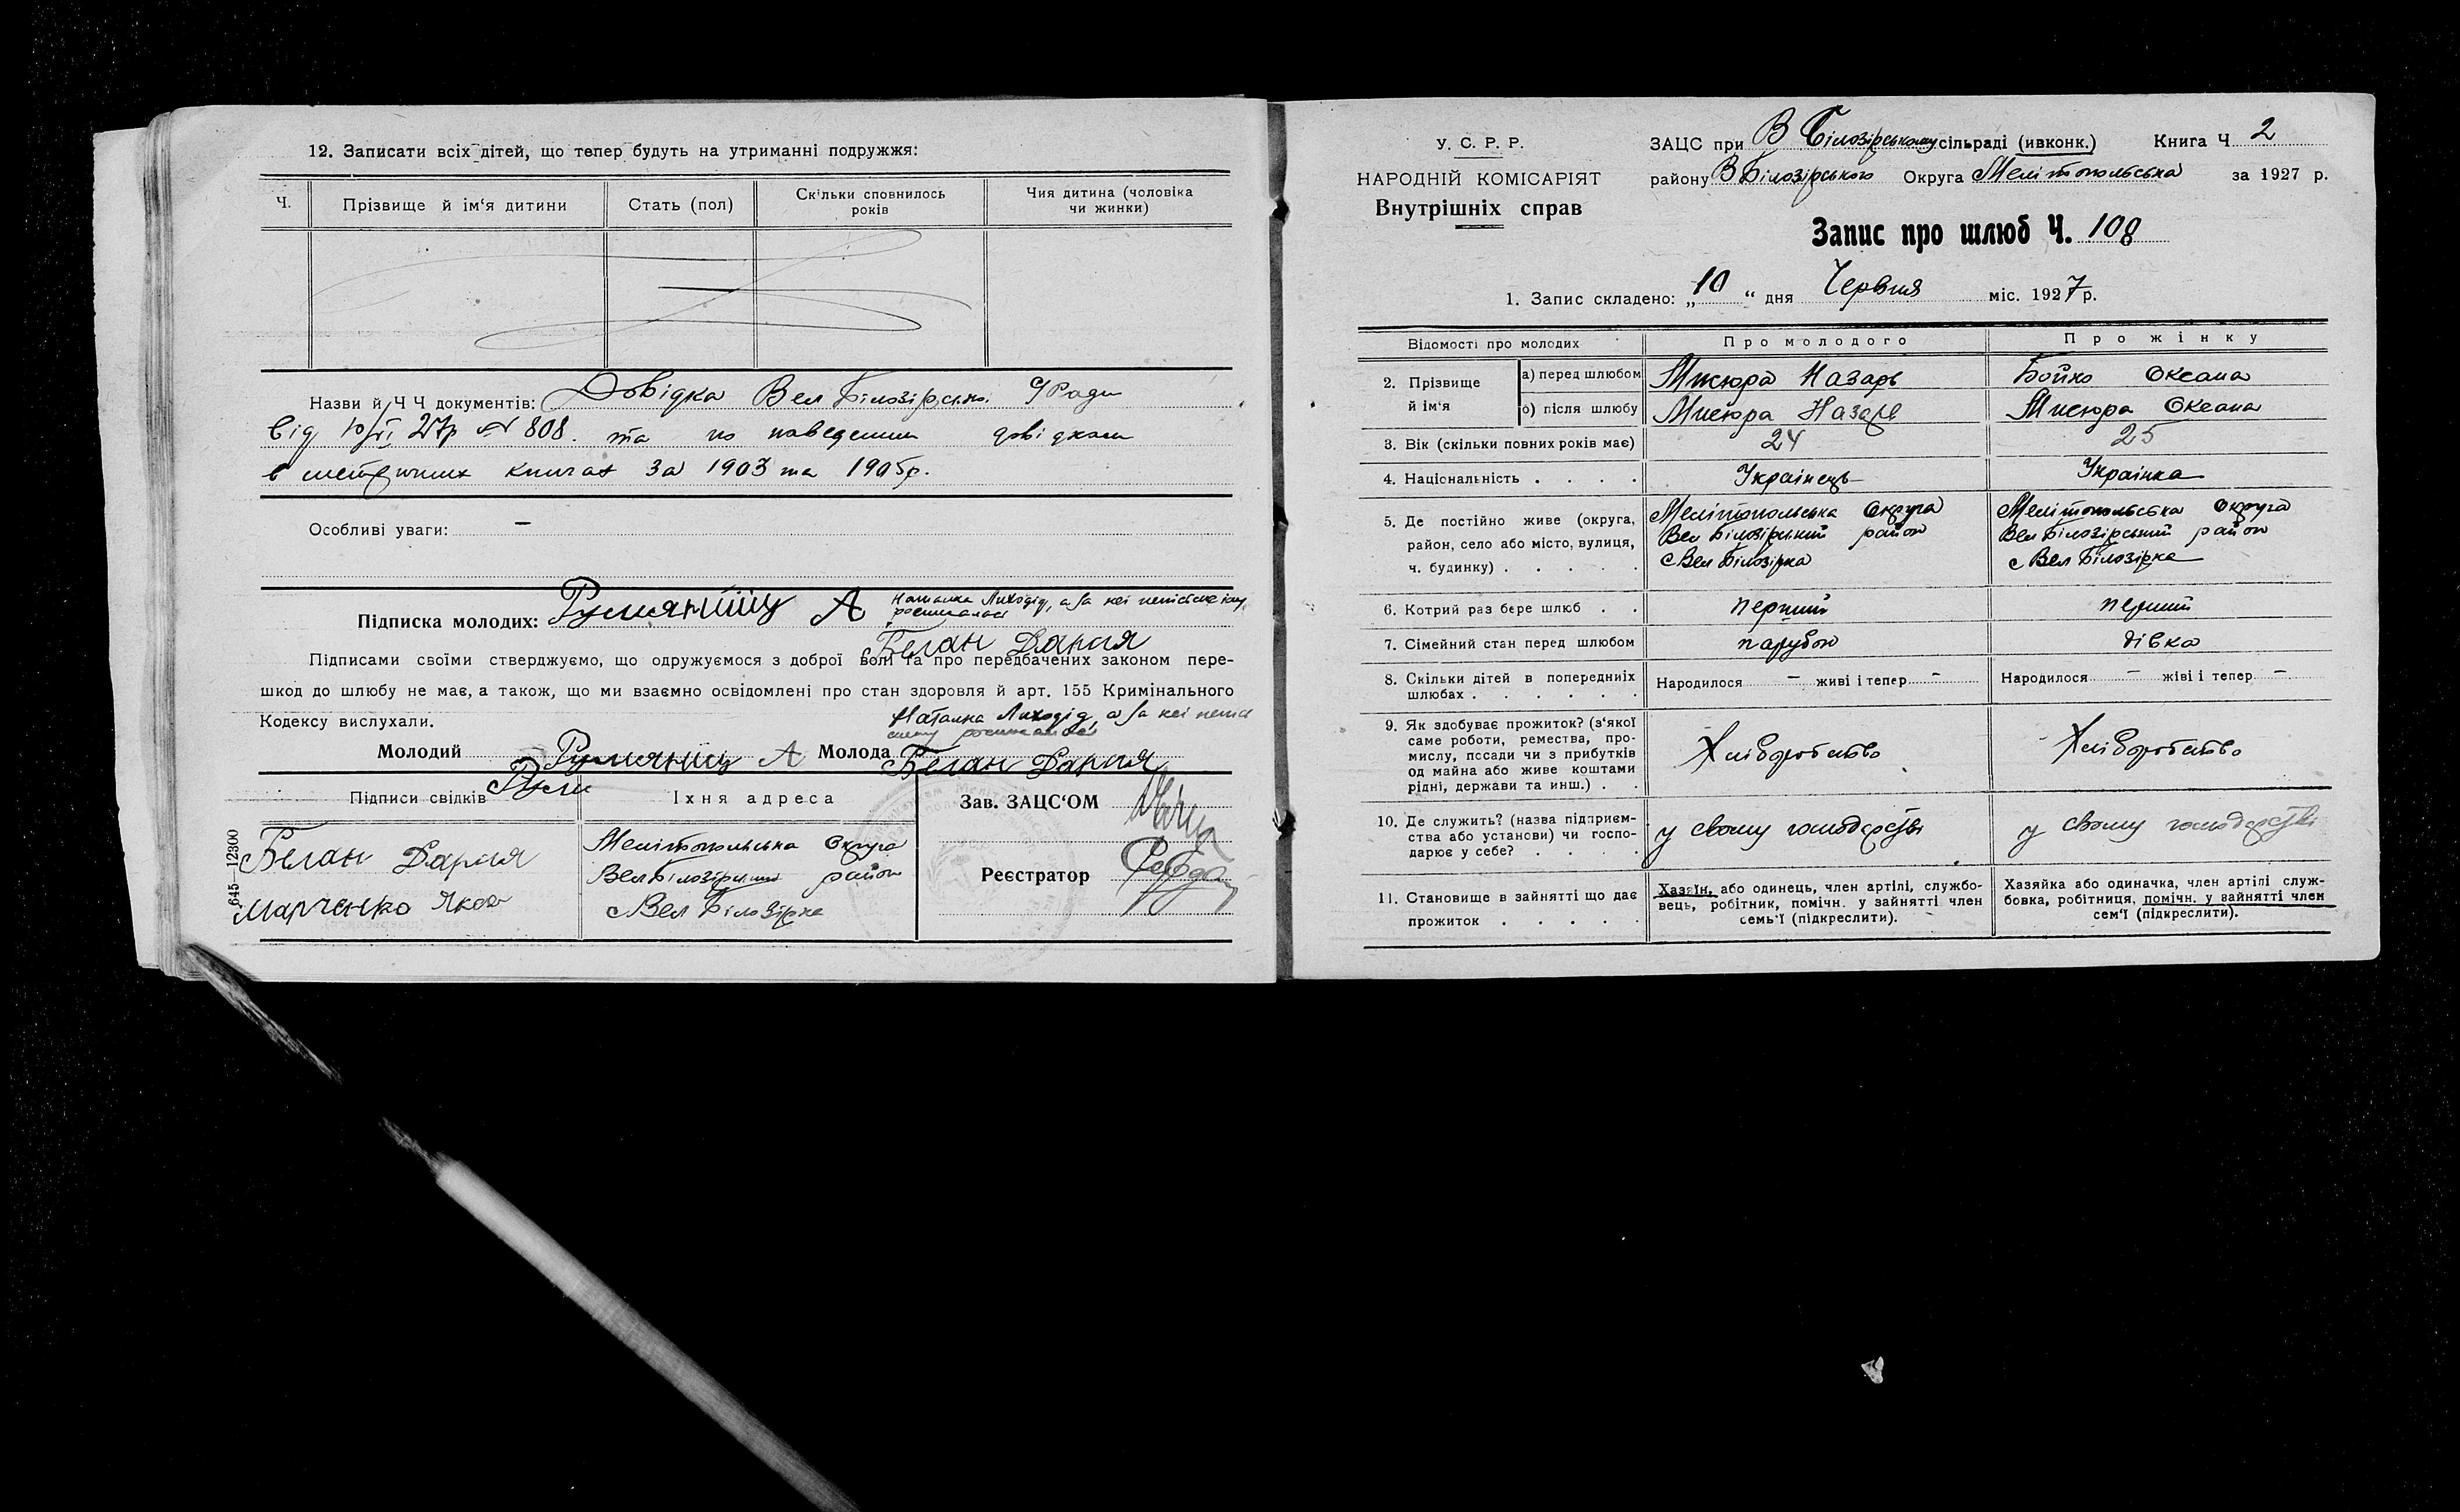 12. Записати всіх дітей, що тепер будуть на утриманні подружжя:
Ч.
Прізвище й ім'я дитини
Стать (пол)
Скільки сповнилось років
Чия дитина (чоловіка чи жинки)
Назви й Ч Ч документів: Довідка Вел Білозірськ. С/Ради
від 10/VI 27р № 808. та по наведеним довідкам
в метричних книгах за 1903 та 1905р.
Особливі уваги: —
Підписка молодих: А Наталка Лиходід, а за неї неписьменну
росписалась
Белан Дария
Підписами своїми стверджуємо, що одружуємося з доброї волі та про передбачених законом пере-
шкод до шлюбу не має, а також, що ми взаємно освідомлені про стан здоровля й арт. 155 Кримінального
Кодексу вислухали.
Наталка Лиходід, а за неї
Молодий А Молода Белан Дария
Підписи свідків
Їхня адреса
Зав. ЗАЦС'ОМ
Белан Дария
Марченко Яков
Мелітопольська Округа
Вел Білозірський район
с Вел Білозірка
Реєстратор
645—12300
У. С. Р. Р.
НАРОДНІЙ КОМІСАРІЯТ
Внутрішніх справ
ЗАЦС при В Білозірському сільраді (ивконк.) Книга Ч 2
району В Білозірського Округа Мелітопольська за 1927 р.
Запис про шлюб Ч. 108
1. Запис складено: „10“ дня Червня міс. 1927р.
Відомості про молодих
Про молодого
Про жінку
2. Прізвище й ім'я
а) перед шлюбом Мисюра Назарь Бойко Оксана
б) після шлюбу Мисюра Назарь Мисюра Оксана
3. Вік (скільки повних років має) 24 25
4. Національність . . . . Українець Українка
5. Де постійно живе (округа,
район, село або місто, вулиця,
ч. будинку) . . . . .
Мелітопольська Округа
Вел Білозірський район
с Вел Білозірка
Мелітопольська Округа
Вел Білозірський район
с Вел Білозірка
6. Котрий раз бере шлюб . . перший перший
7. Сімейний стан перед шлюбом парубок дівка
8. Скільки дітей в попередниїх
шлюбах . . . . . .
Народилося — живі і тепер —
Народилося — жіві і тепер —
9. Як здобуває прожиток? (з'якої
саме роботи, ремества, про-
мислу, посади чи з прибутків
од майна або живе коштами
рідні, держави та инш.) . .
Хліборобство
Хліборобство
10. Де служить? (назва підприєм-
ства або установи) чи госпо-
дарює у себе? . . . .
у свому господарстві
у свому господарстві
11. Становище в зайнятті що дає
прожиток . . . . .
Хазяїн, або одинець, член артілі, службо-
вець, робітник, помічн. у зайнятті член
семь'ї (підкреслити).
Хазяйка або одиначка, член артілі служ-
бовка, робітниця, помічн. у зайнятті член
сем'ї (підкреслити).